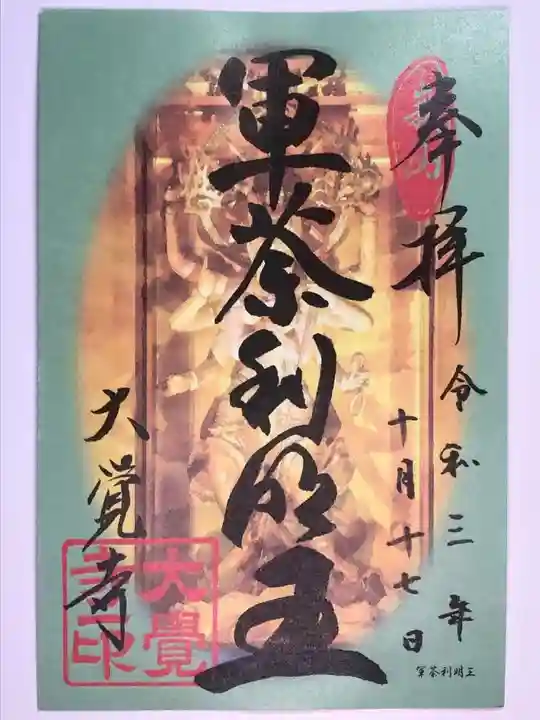 奉拝
令和三年
十月十七日
軍荼利明王
大覺寺
大覺
寺印
王明利荼軍